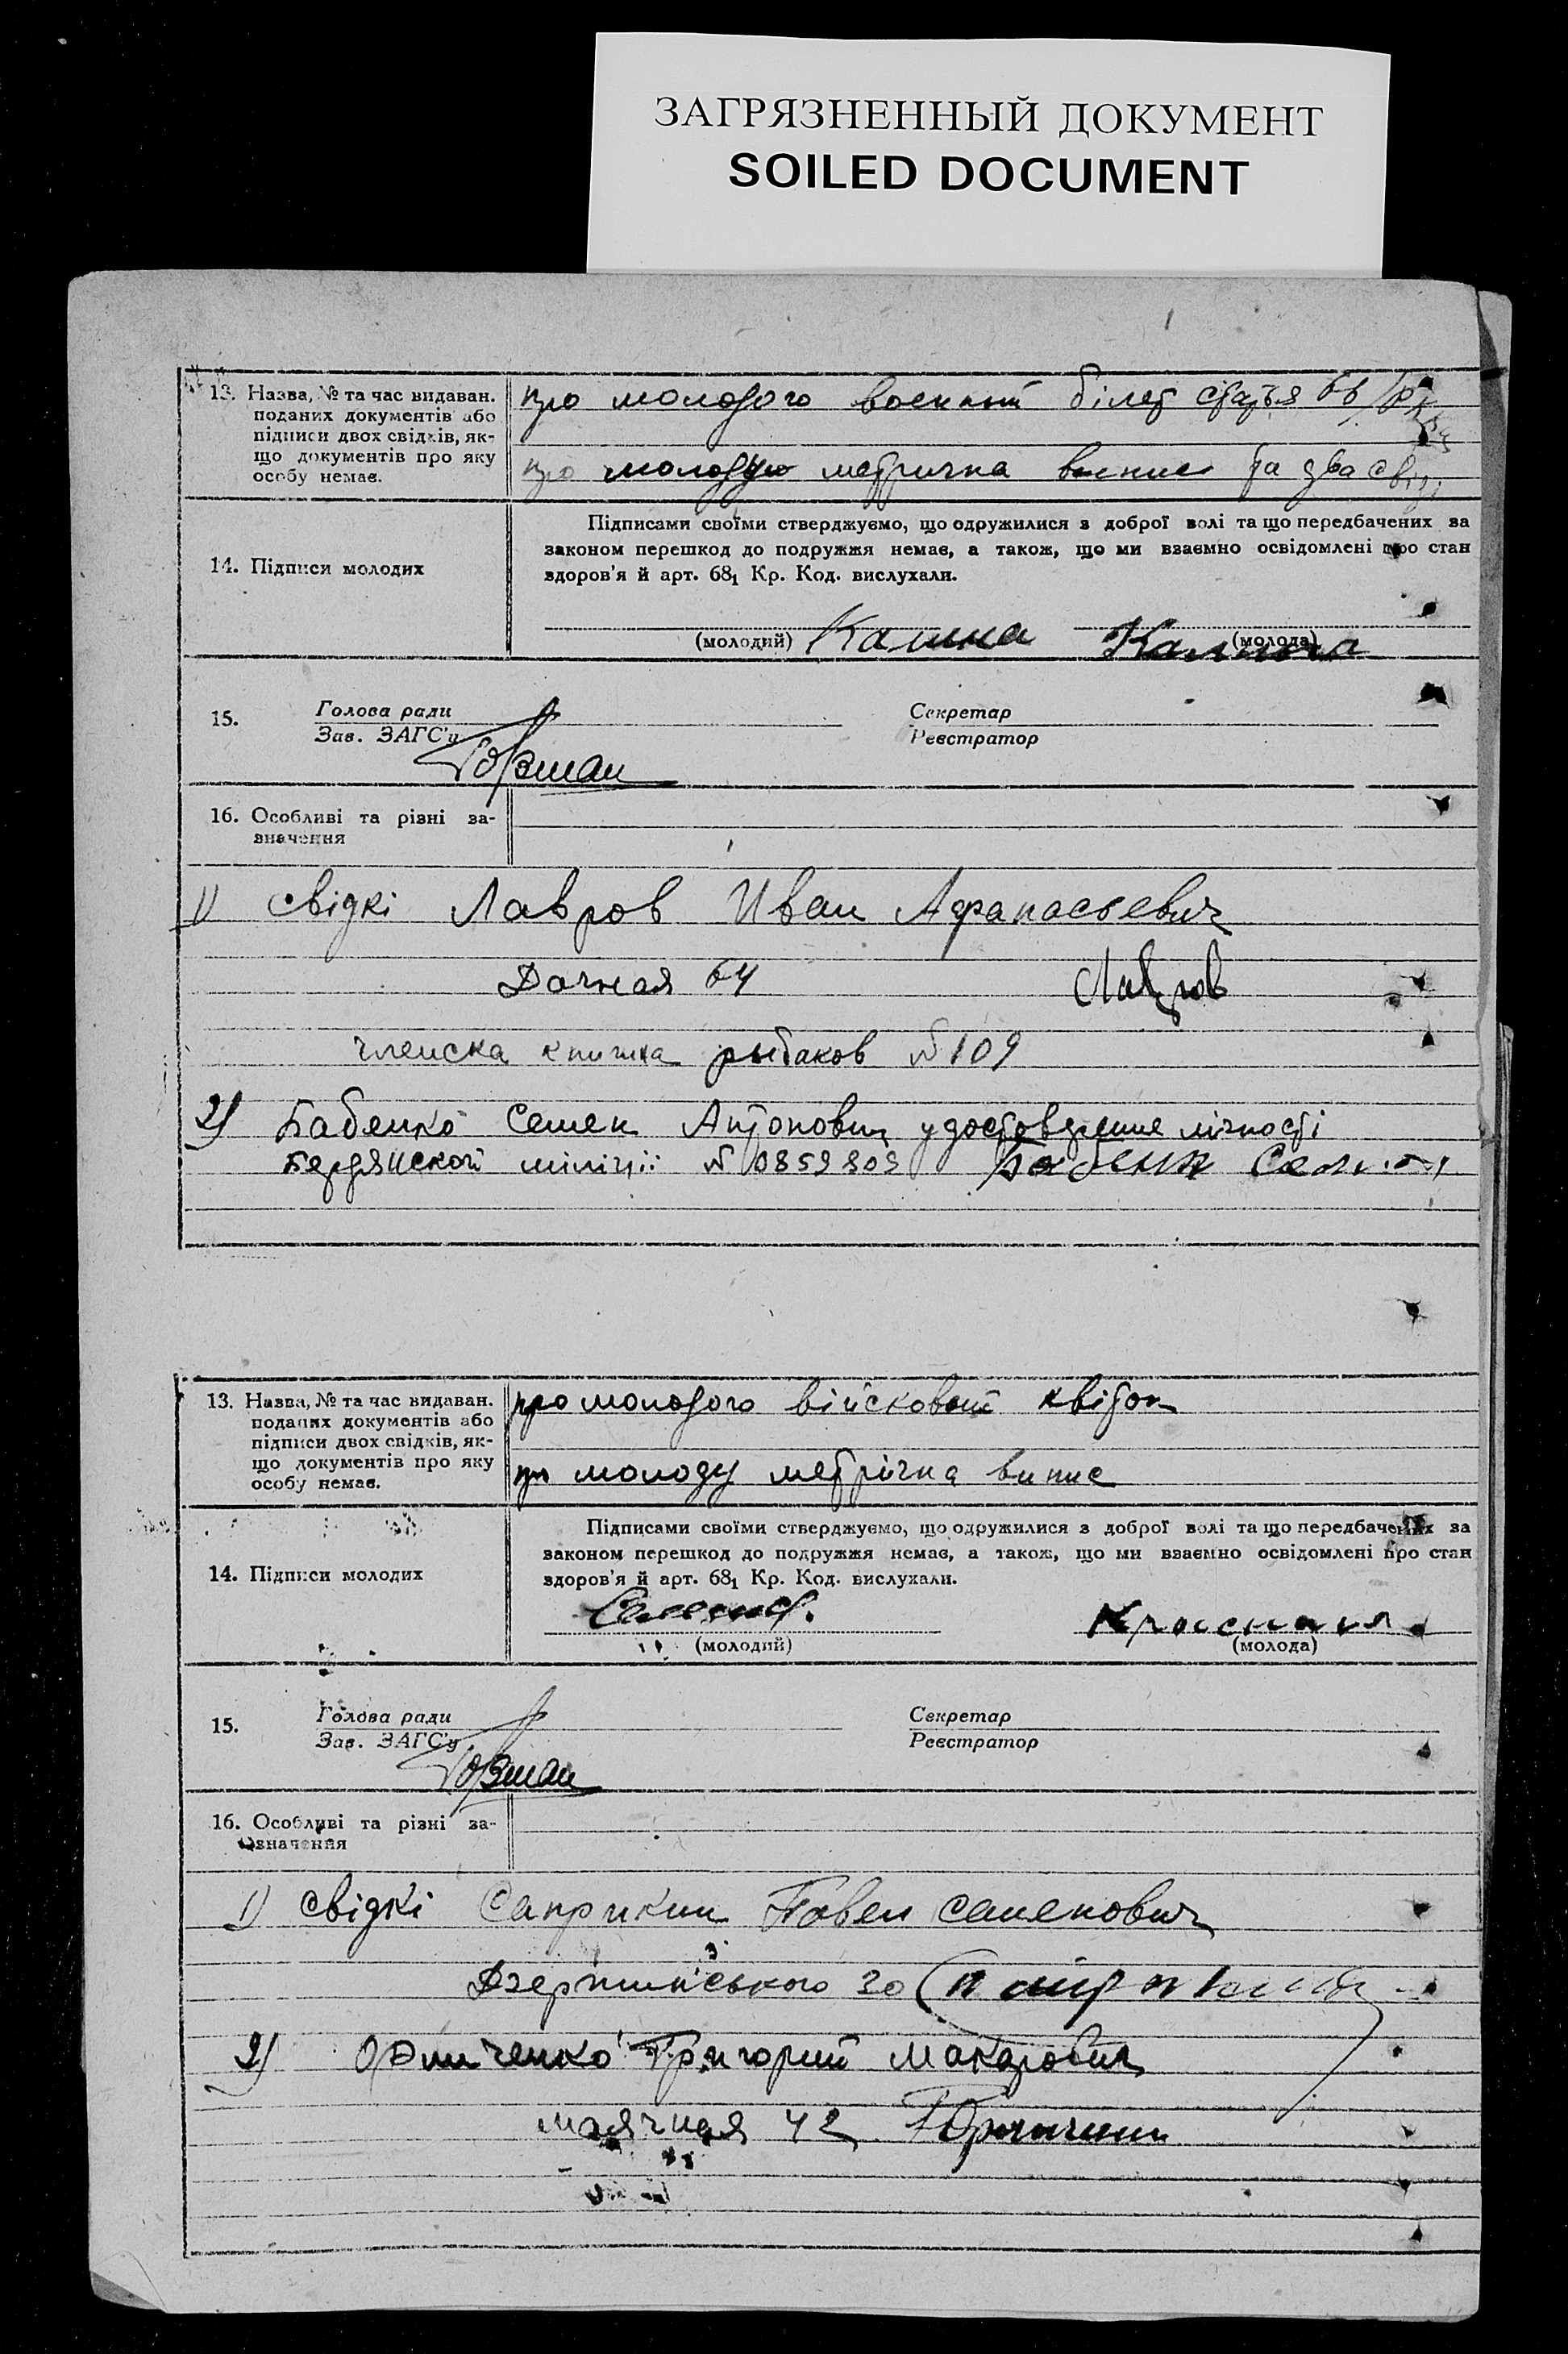 ЗАГРЯЗНЕННЫЙ ДОКУМЕНТ
SOILED DOCUMENT
13. Назва, № та час видаван.
поданих документів або
підписи двох свідків, як-
що документів про яку
особу немає.
про молодого воєнний білет статья 6б
про молодую метрична випис та два
14. Підписи молодих
Підписами своїми стверджуємо, що одружилися з доброї волі та що передбачених за
законом перешкод до подружжя немає, а також, що ми взаємно освідомлені про стан
здоров'я й арт. 68₁ Кр. Код. вислухали.
(молодий) (молода)
15. Голова ради
Зав. ЗАГС'у
Секретар
Реєстратор
16. Особливі та різні за-
значення
1) свідкі Лавров Иван Афанасьевич
Дачная 64 Лавров
членска книжка рыбаков № 109
2) Бабенко Семен Антонович удостовірение лічності
Бердянської міліції № 0859809
13. Назва, № та час видаван.
поданих документів або
підписи двох свідків, як-
що документів про яку
особу немає.
про молодого військовий квіток
про молоду метрічна випис
14. Підписи молодих
Підписами своїми стверджуємо, що одружилися з доброї волі та що передбачених за
законом перешкод до подружжя немає, а також, що ми взаємно освідомлені про стан
здоров'я й арт. 68₁ Кр. Код. вислухали.
(молодий) (молода)
15. Голова ради
Зав. ЗАГС'у
Секретар
Реєстратор
16. Особливі та різні за-
значення
1) свідкі Саприкин Павел Семенович
Дзержинського 30
2) Григорий Макарович
маячная 42